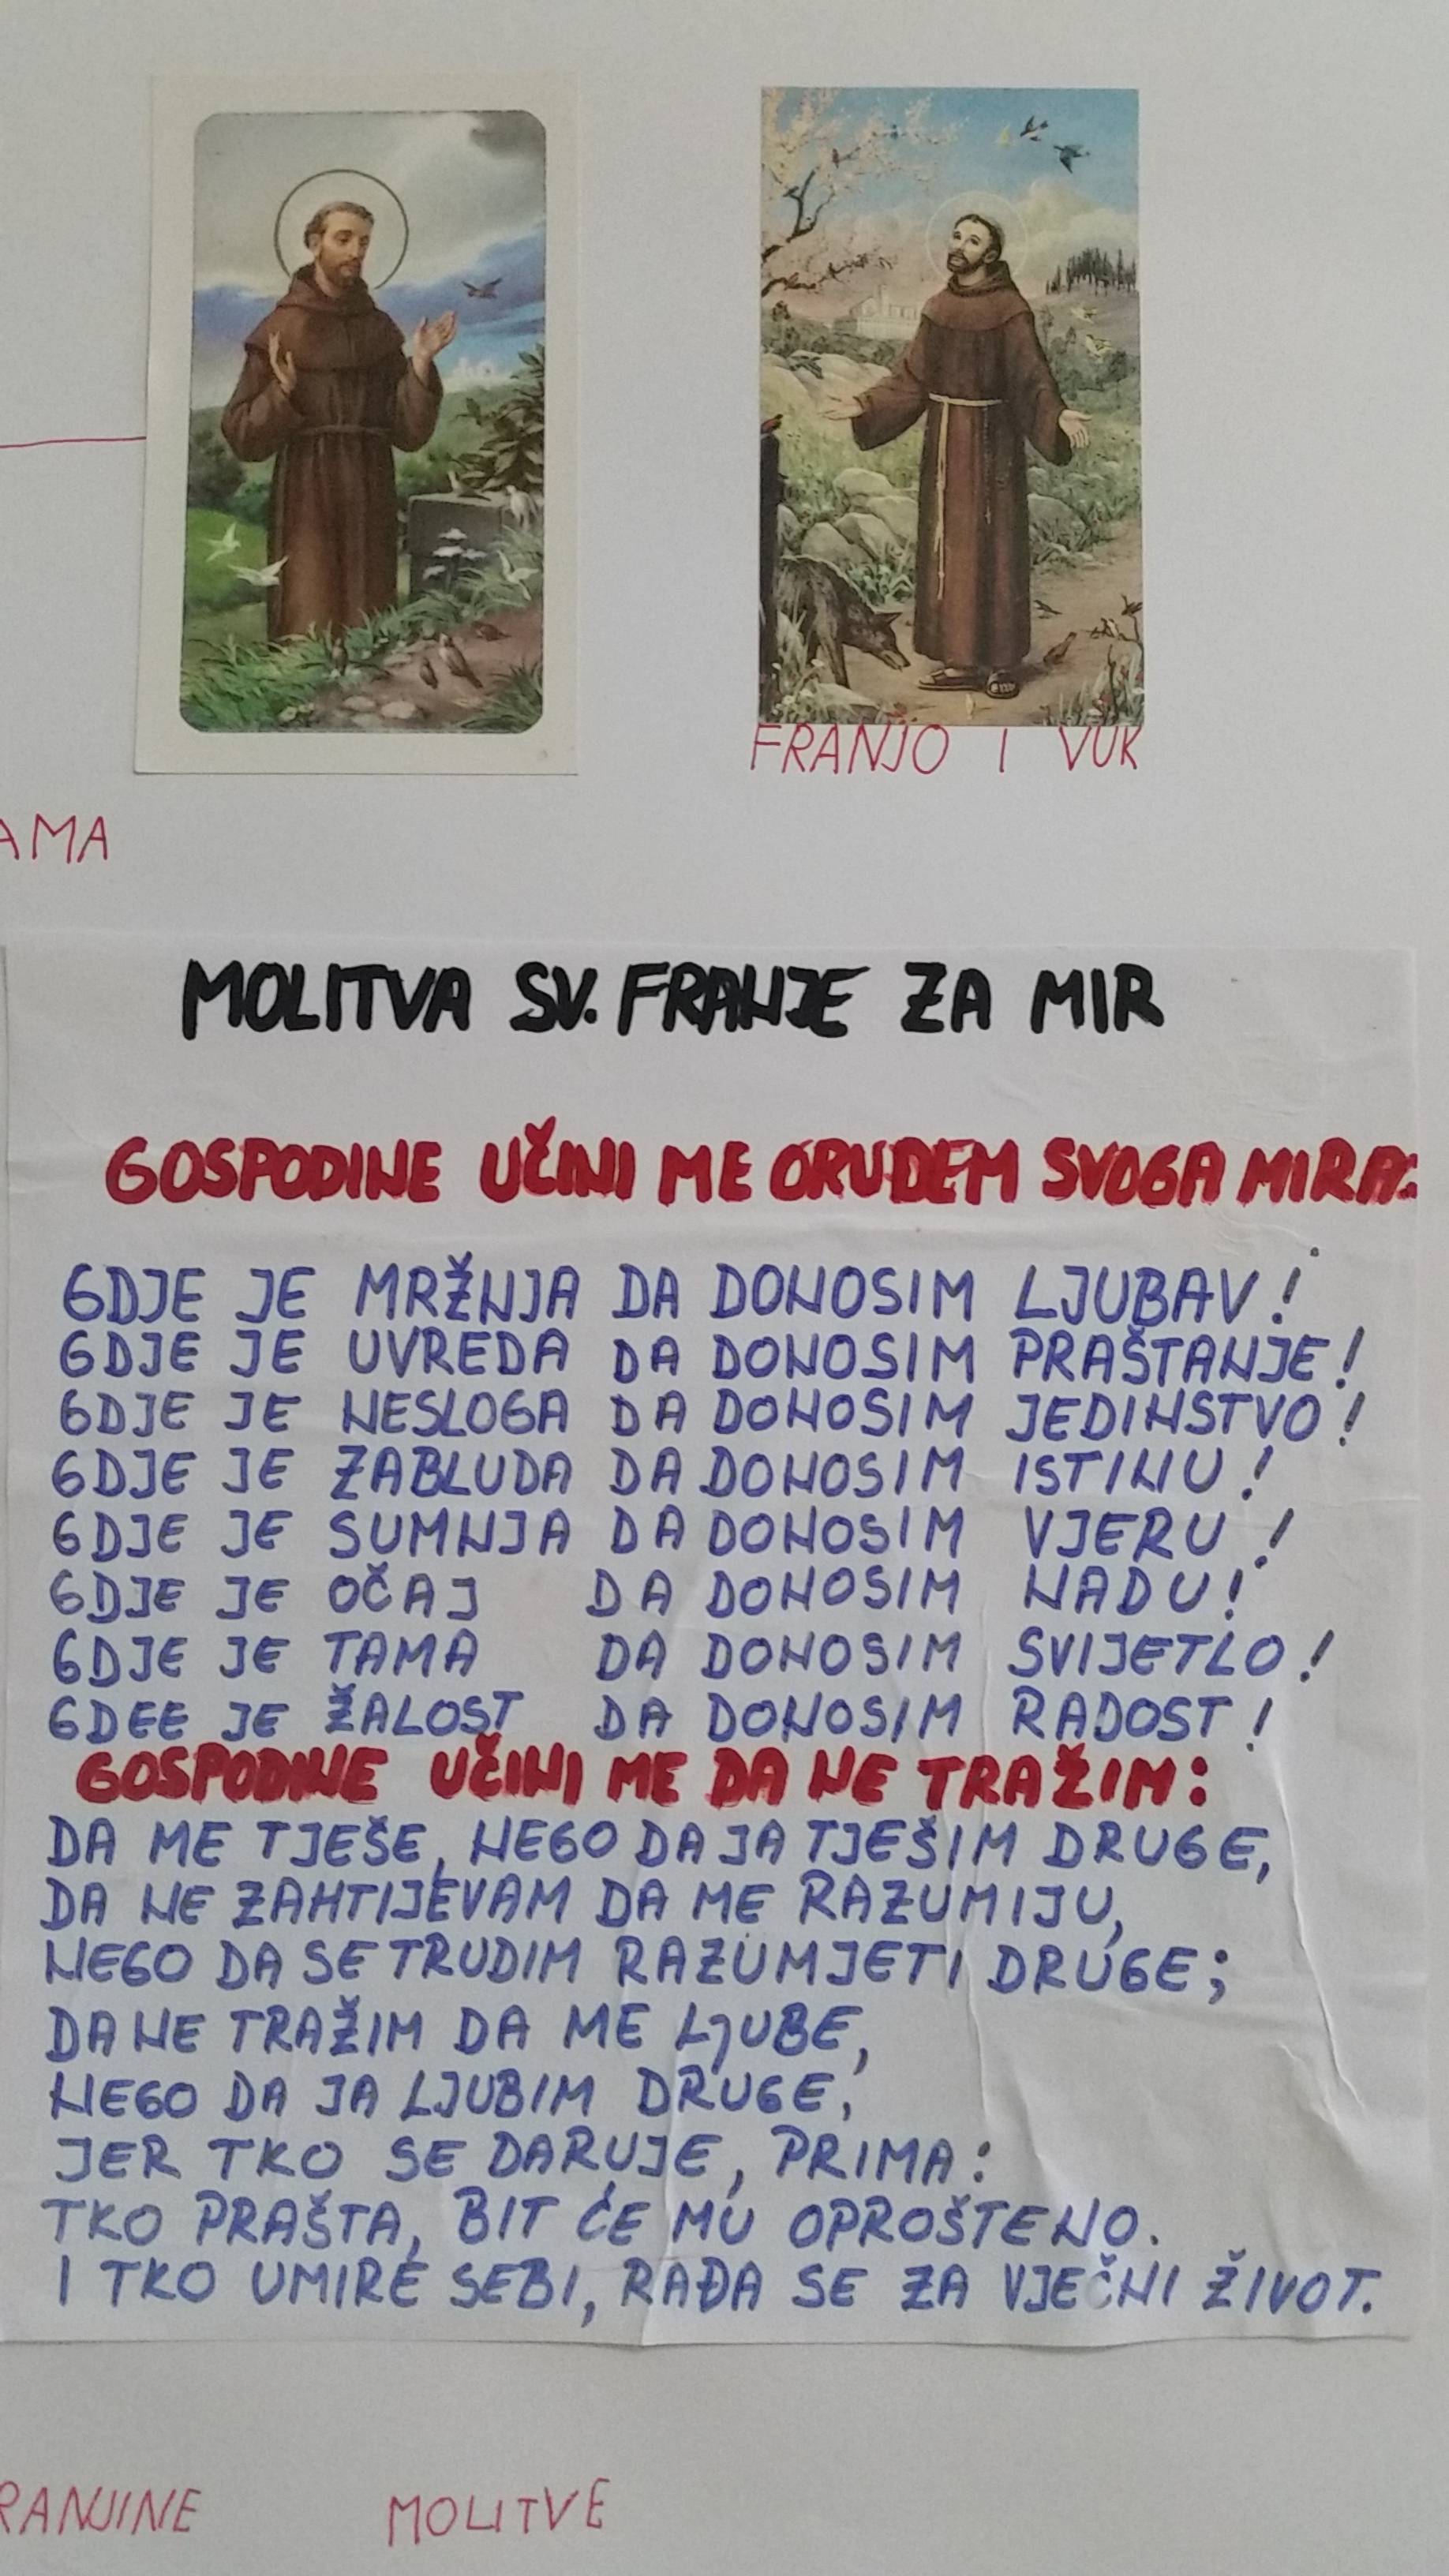 FRANJO I VUK
AMA
MOLITVA SV. FRANJE ZA MIR
GOSPODINE UČINI ME ORUĐEM SVOGA MIRA:
GDJE JE MRŽNJA DA DONOSIM LJUBAV!
GDJE JE UVREDA DA DONOSIM PRAŠTANJE!
GDJE JE NESLOGA DA DONOSIM JEDINSTVO!
GDJE JE ZABLUDA DA DONOSIM ISTINU!
GDJE JE SUMNJA DA DONOSIM VJERU!
GDJE JE OČAJ DA DONOSIM NADU!
GDJE JE TAMA DA DONOSIM SVIJETLO!
GDEE JE ŽALOST DA DONOSIM RADOST!
GOSPODINE UČINI ME DA NE TRAŽIM:
DA ME TJEŠE, NEGO DA JA TJEŠIM DRUGE,
DA NE ZAHTIJEVAM DA ME RAZUMIJU,
NEGO DA SE TRUDIM RAZUMJETI DRUGE;
DA NE TRAŽIM DA ME LJUBE,
NEGO DA JA LJUBIM DRUGE,
JER TKO SE DARUJE, PRIMA:
TKO PRAŠTA, BIT ĆE MU OPROŠTENO.
I TKO UMIRE SEBI, RAĐA SE ZA VJEČNI ŽIVOT.
RANJINE MOLITVE